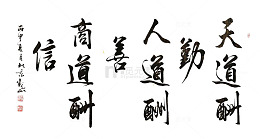 天道酬
勤
人道酬
善
商道酬
信
丙申夏月北京